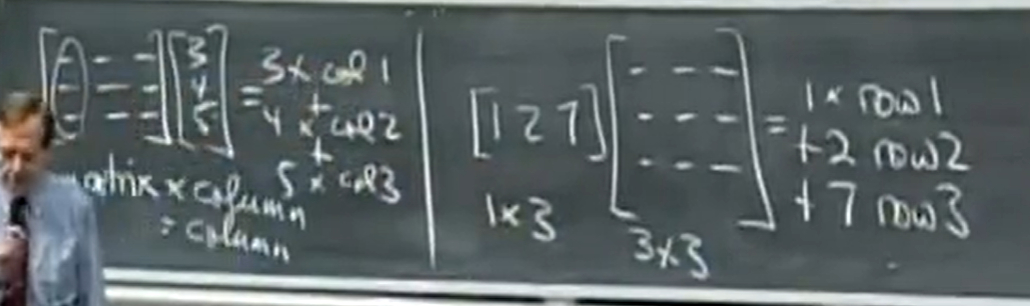 [- - -] [3] = 3 x col 1
[- - -] [4] +
[- - -] [5] 4 x col 2
+
5 x col 3
matrix x column
= column
[1 2 7] [- - -] = 1 x row 1
[- - -] + 2 row 2
[- - -] + 7 row 3
1 x 3
3 x 3